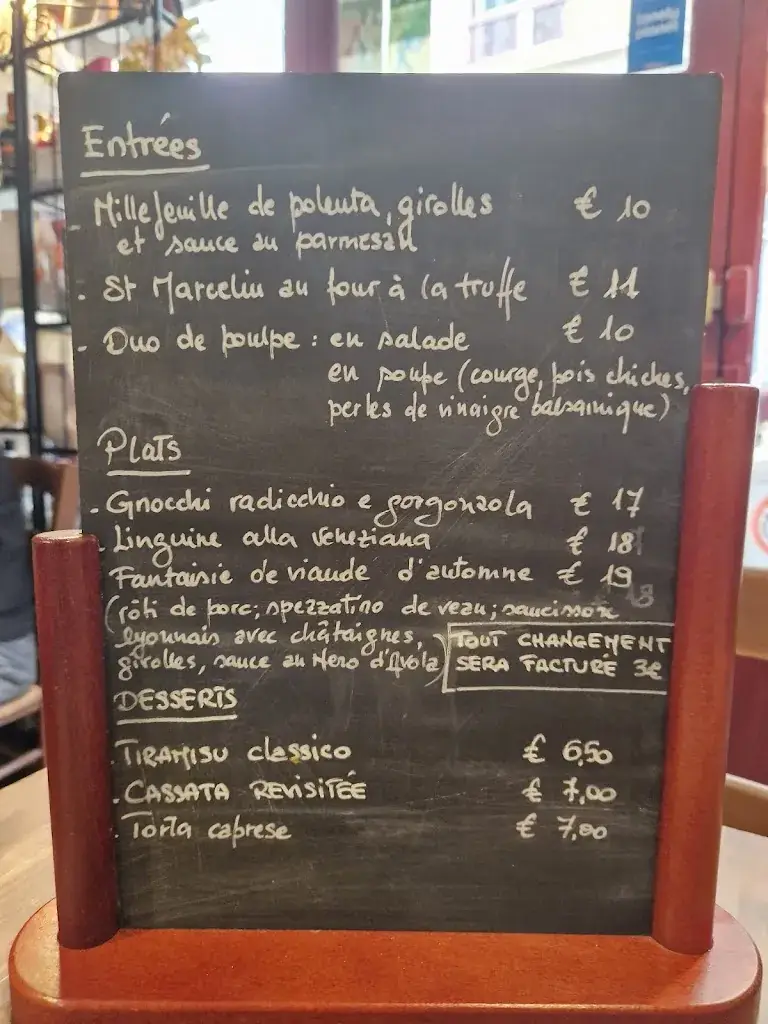 Entrées
- Millefeuille de polenta, girolles € 10
et sauce au parmesan
- St Marcelin au four à la truffe € 11
- Duo de poulpe : en salade € 10
en soupe (courge, pois chiches,
perles de vinaigre balsamique)
Plats
- Gnocchi radicchio e gorgonzola € 17
- Linguine alla veneziana € 18
Fantaisie de viande d'automne € 19
(rôti de porc; spezzatino de veau; saucisson
lyonnais avec châtaignes,
girolles, sauce au Nero d'Avola)
TOUT CHANGEMENT
SERA FACTURÉ 3€
DESSERTS
. TIRAMISU classico € 6,50
. CASSATA REVISITÉE € 7,00
. Torta caprese € 7,00